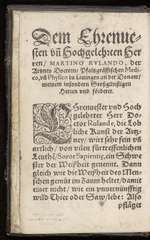 Dem Ehrenue-
sten vñ Hochgelehrten Her-
ren/ MARTINO RVLANDO, der
Artznei Doctorn Pfaltzgräffischen Medi-
co, vñ Physico zu Lauingen an der Donau/
meinem insondern Großgünstigen
Herrn vnd förderer.
EHrenuester vnd Hoch
gelehrter Herr Do-
ctor Ruland, die Löb-
liche Kunst der Artz-
ney/ wirt sehr fein vñ
artlich/ von vilen fürtrefflichen
Leuth/ Soror Sapientiæ, ein Schwe
ster der Weißheit genennt. Dann
gleich wie die Weißheit des Men-
schen gemüt im Zaum heltet/ damit
einer nicht/ wie ein vnuernünfftig
wild Thier oder Saw/ lebe: Also
pfläget